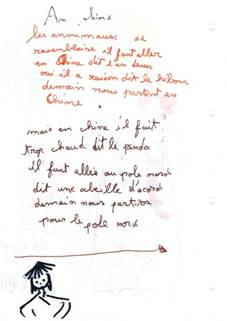 An chine
les annimausc se
rasemblaire il faut aller
en Chine dit l'un deux
oui il a raison dit le hibou
demain nous partont en
Chine
mais en chine il fait
trop chaud dit le panda
il faut alles au pole nord
dit une abeille d'acord
demain nous partiron
pour le pole nord